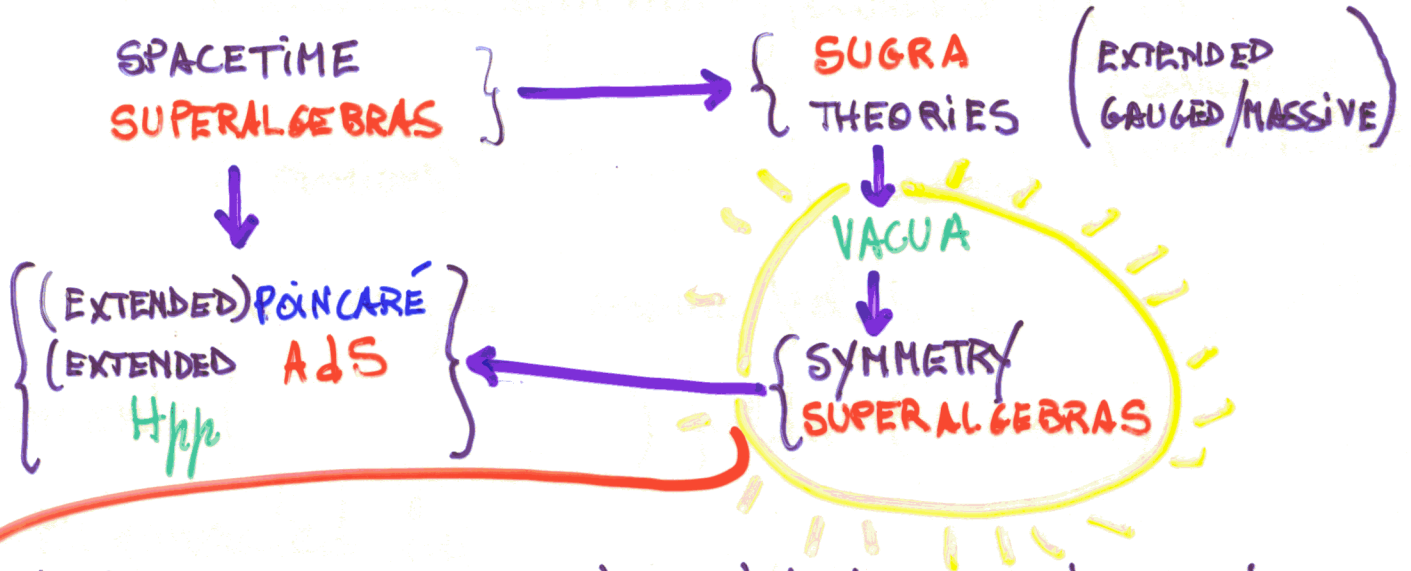 SPACETIME
SUPERALGEBRAS
SUGRA
THEORIES
(EXTENDED
GAUGED/MASSIVE)
VACUA
(EXTENDED) POINCARÉ
(EXTENDED AdS
Hpp
SYMMETRY
SUPERALGEBRAS